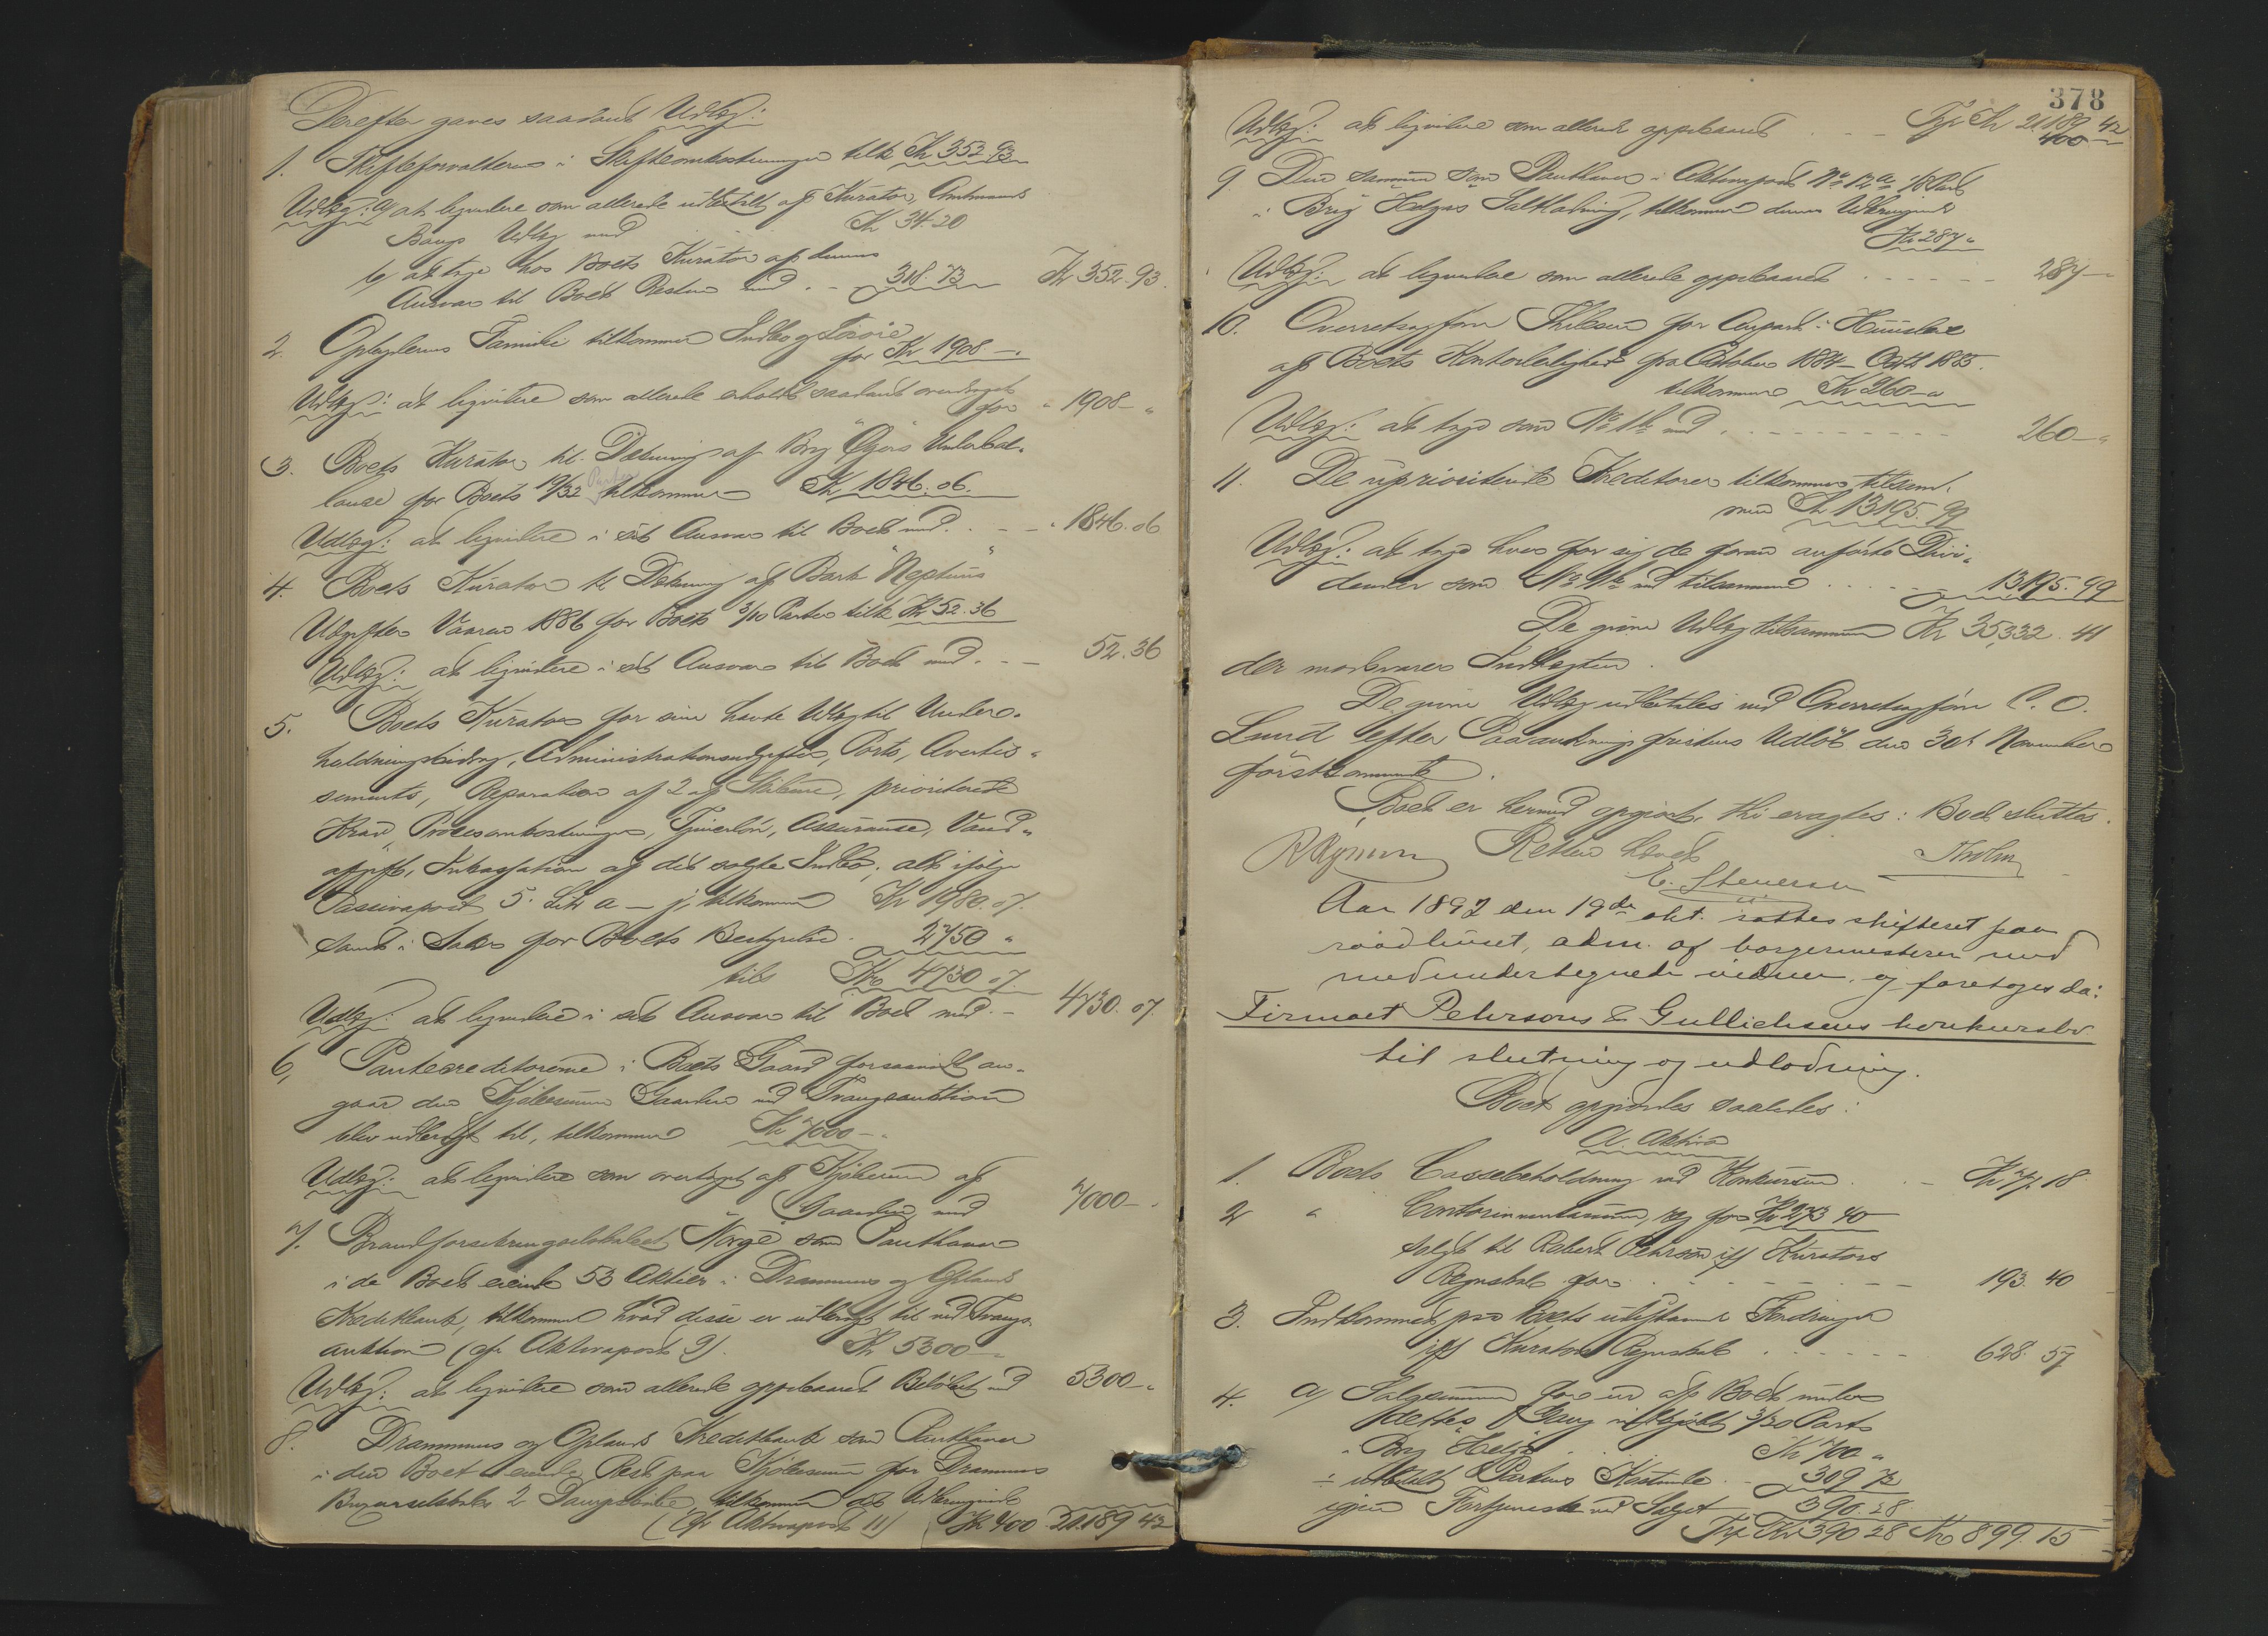 Derefter gaves saadant Udlæg:
1. Skifteforvalteren i Skifteomkostninger tilk. Kr 352.93
Udlæg: a) at liqvidere som allerede udbetalt af Kurator, Amtmand
Bangs Udlæg med Kr 34.20
b) at tage hos Boets Kurator af dennes
Ansvar til Boet Resten med . - 318.73 Kr 352.93.
2. Opbyderens Familie tilkommer Indbo og Løsøre
for Kr 1908 -.
Udlæg: at liqvidere som allerede erholdt saadant overdraget
for " 1908 - "
3. Boets Kurator til Dekning af Brig "Ægirs" Underbal-
lance for Boets 19/32 Parter tilkommer Kr 1846.06.
Udlæg: at liqvidere i sit Ansvar til Boet med . - - " 1846.06
4. Boets Kurator til Dekning af Bark "Neptuns"
Udgifter Vaaren 1886 for Boets 3/10 Parter tilk. Kr 52.36
Udlæg: at liqvidere i sit Ansvar til Boet med . - - 52.36
5. Boets Kurator for sine havte Udlæg til Under-
holdningsbidrag, Administrationsudgifter, Porto, Avertis-
sements, Reparation af 2 af Skibene, prioriterede
Krav, Procesomkostninger, Tjenerløn, Assurance, Vand-
afgift, Inkassation af det solgte Indbo, alt ifølge
Passivapost 5 Litr a - j, tilkommer Kr 1980.07.
samt i Salær for Boets Bestyrelse . 2750 "
tils Kr 4730.07.
Udlæg: at liqvidere i sit Ansvar til Boet med . - 4730.07.
6, Pantecreditorerne i Boets Gaard forsaavidt an-
gaar den Kjøbesum Gaarden ved Tvangsauktion
blev udbragt til, tilkommer Kr 7000 -.
Udlæg: at liqvidere som overtaget af Kjøberen af
Gaarden med 7000 -.
7. Brandforsikringsselskabet "Norge" som Panthaver
i de Boet eiende 53 Aktier i Drammens og Oplands
Kreditbank, tilkommer hvad disse er udbragt til ved Tvangs-
auktion (cfr Aktivapost 9). Kr 5300 -
Udlæg: at liqvidere som allerede oppebaaret Beløbet med 5300 -.
8. Drammens og Oplands Kreditbank som Panthaver
i den Boet eiende Rest paa Kjøbesum for Drammens
Bugserselskabs 2 Dampskibe, tilkommer det Udbringende
(cfr Aktivapost 11) Kr 400 21.189 42
378
Trf Kr 21189 42
Udlæg: at liqvidere som allerede oppebaaret . . - 400 -
9. Den samme som Panthaver i Aktivapost No 12 a 1/8 Part
i Brig Helgas Saltladning, tilkommer dennes Udbringende
Kr 287 "
Udlæg: at liqvidere som allerede oppebaaret . . . . . . 287 -
10. Overretssagfører Thilesen for Anpart i Husleie
af Boets Kontorleilighed fra Oktober 1884 - Oct 1885.
tilkommer Kr 260 - "
Udlæg: at tage som No 1 b med . . . . . . . . . 260 - "
11. De uprioriterede Kreditorer tilkommer tilsam-
men Kr 13195.99
Udlæg: at tage hver for sig de foran anførte Divi-
dender som No 1 b med tilsammen . . . . . 13,195.99
De givne Udlæg tilsammen Kr 35,332.41
der modsvarer Indtægten.
De givne Udlæg udbetales ved Overretssagfører C. O.
Lund efter Paaankningsfristens Udløb den 30te November
førstkommende.
Boet er hermed opgjort, thi eragtes: Boet sluttes.
Retten hævet
E. Steuersen
Aar 1892 den 19de okt. sattes skifteret paa
raadhuset, adm. af borgermesteren med
medundertegnede vidner, og foretoges da:
Firmaet Pehrsons & Gullichsens konkursbo
til slutning og udlodning.
Boet opgjordes saaledes:
A. Aktiva
1. Boets Cassebeholdning ved Konkursen . . - Kr 77.18
2 " Contorinventarium, tax for Kr 273 40
solgt til Robert Pehrson iflg Kurators
Regnskab for . . - - - - - - 193.40
3. Indkommet paa Boets udestaaende Fordringer
iflg Kurators Regnskab . . . . . . . 628.57
4. a) Salgssummen for en af Boet under
dettes Gang indkjøbt 3/20 Part
i Brig "Helga" . . . Kr 700 "
÷ udbetalt Partens Kostende . - 309 72
igjen Fortjeneste ved Salget 390.28
Trf Kr 390 28 Kr 899.15